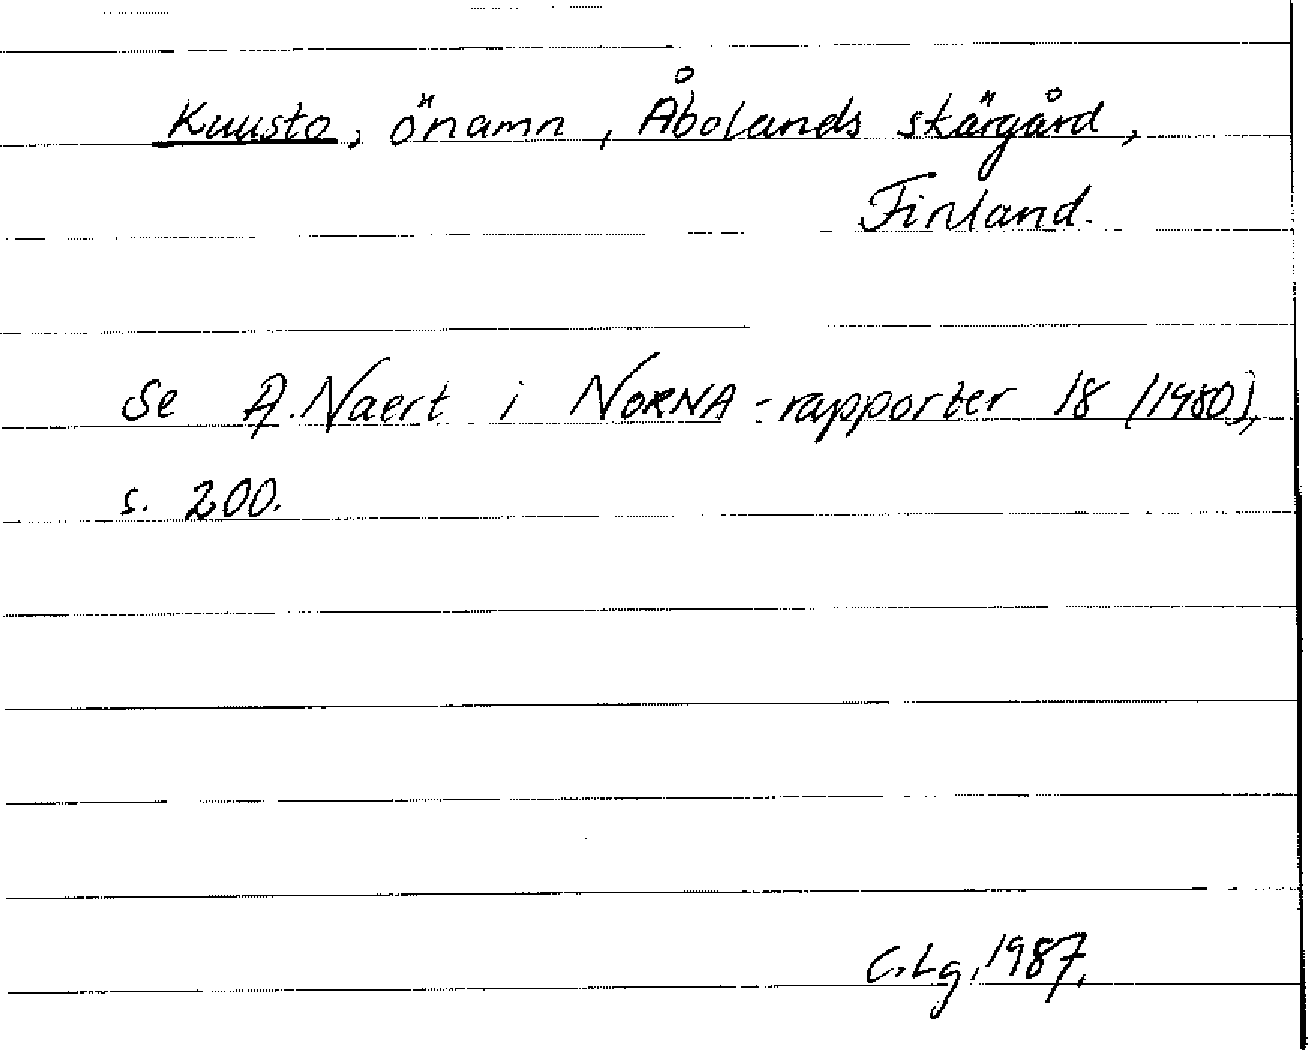 Kuusto, önamn, Åbolands skärgård,
Finland.
Se A. Naert i NORNA-rapporter 18 (1980),
s. 200.
C. Lg, 1987.